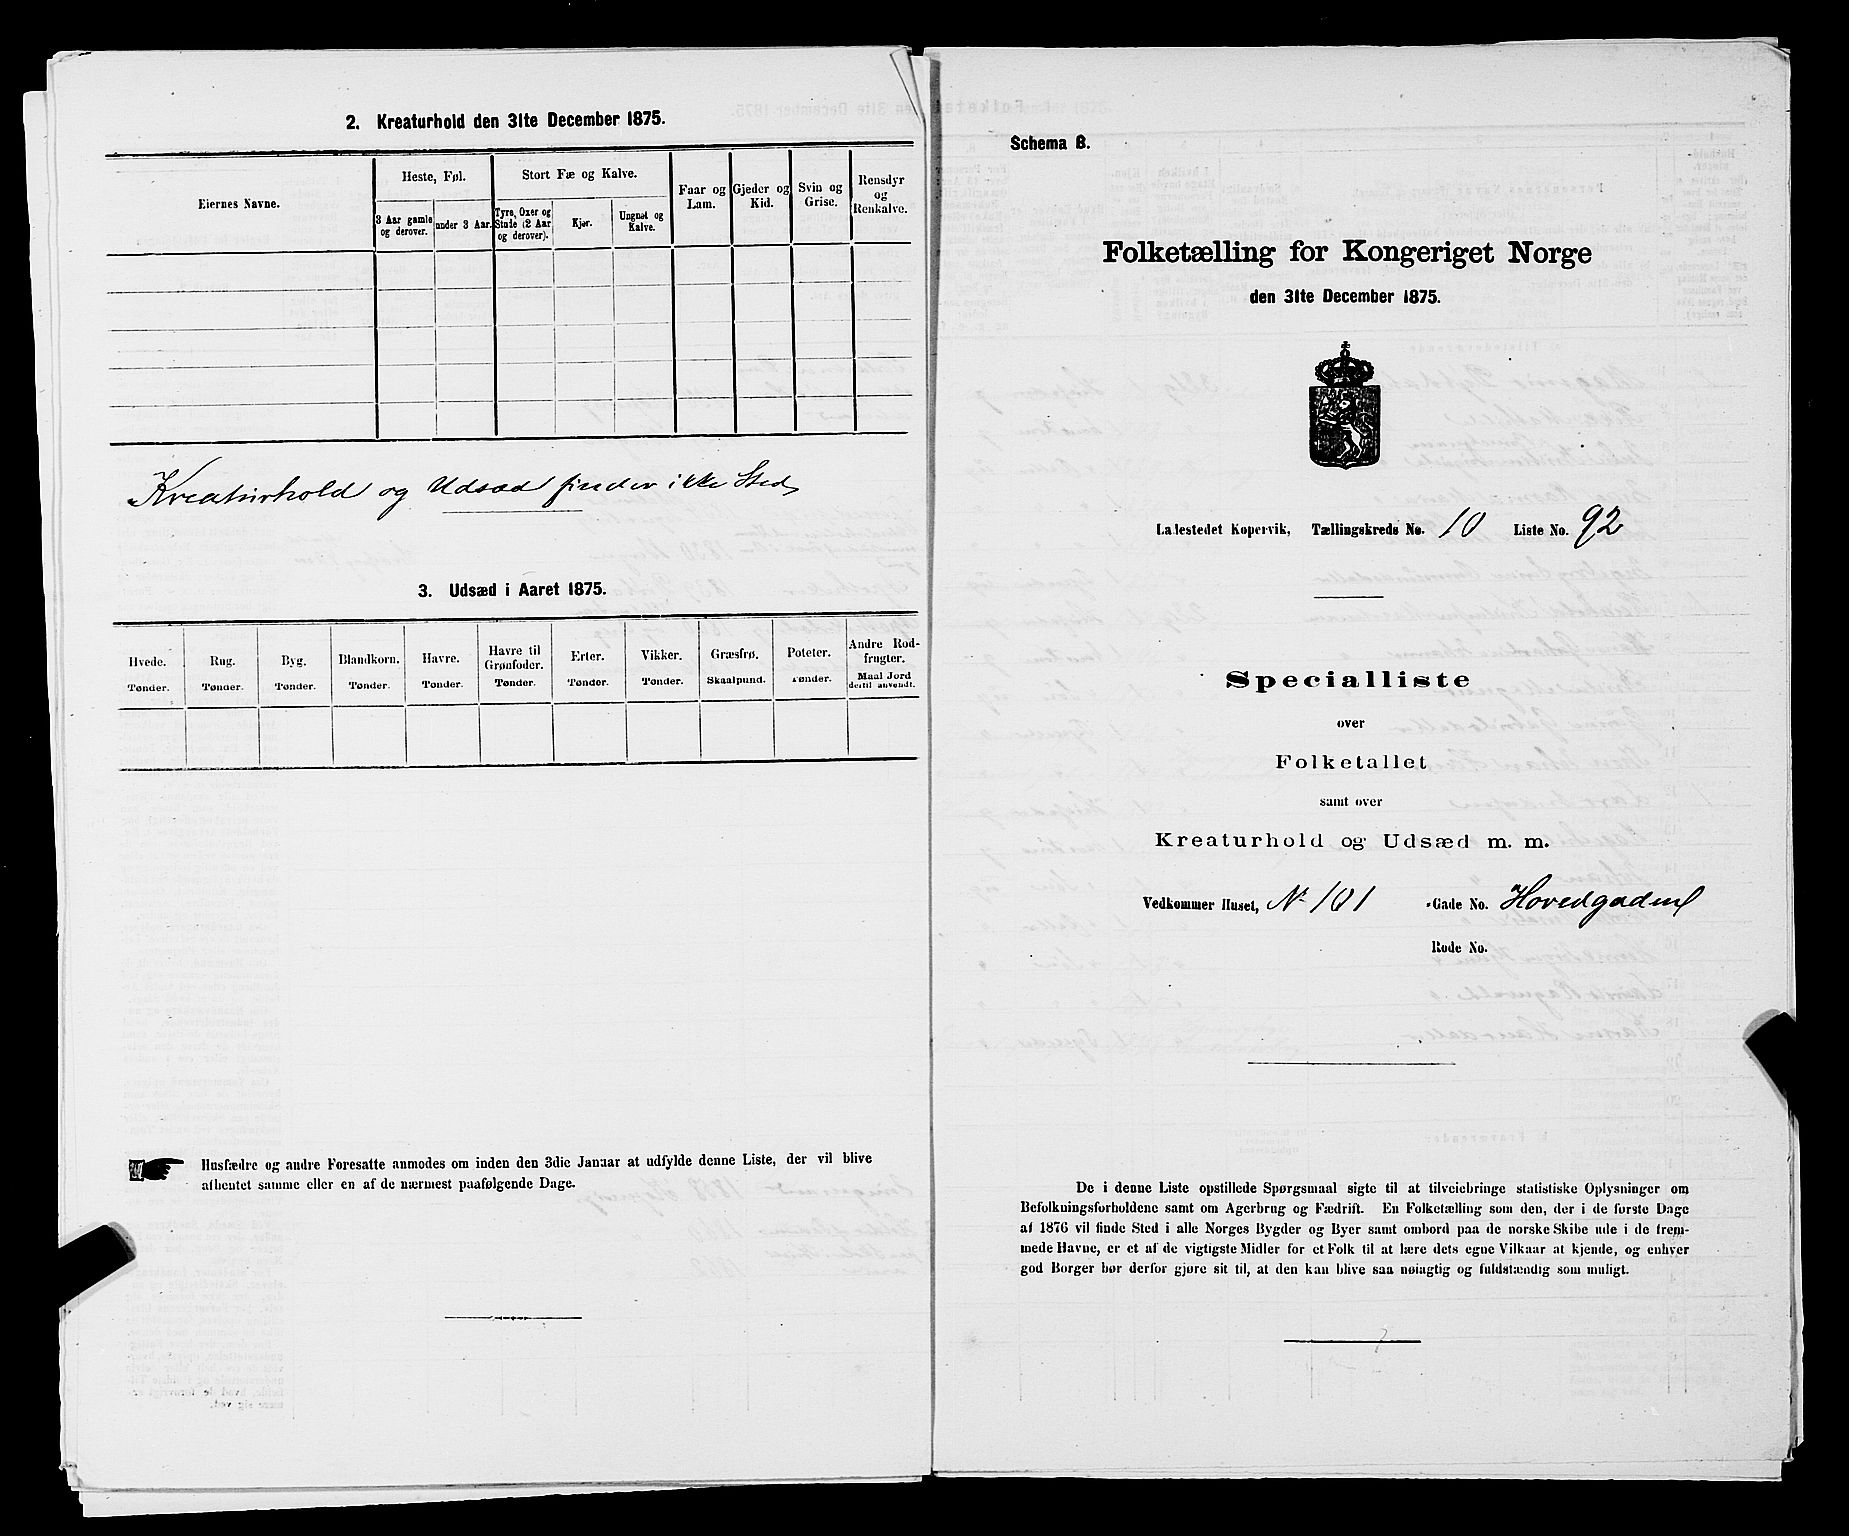 2. Kreaturhold den 31te December 1875.
Eiernes Navne.
Heste, Føl.
Stort Fæ og Kalve.
Faar og Lam.
Gjeder og Kid.
Svin og Grise.
Rensdyr og Renkalve.
3 Aar gamle og derover.
under 3 Aar.
Tyre, Oxer og Stude (2 Aar og derover).
Kjør.
Ungnøt og Kalve.
Kreaturhold og Udsæd finder ikke Sted
3. Udsæd i Aaret 1875.
Hvede. Tønder.
Rug. Tønder.
Byg. Tønder.
Blandkorn. Tønder.
Havre. Tønder.
Havre til Grønfoder. Tønder.
Erter. Tønder.
Vikker. Tønder.
Græsfrø. Skaalpund.
Poteter. Tønder.
Andre Rodfrugter. Maal Jord dertil anvendt.
Husfædre og andre Foresatte anmodes om inden den 3die Januar at udfylde denne Liste, der vil blive
afhentet samme eller en af de nærmest paafølgende Dage.
Schema B.
Folketælling for Kongeriget Norge
den 31te December 1875.
Ladestedet Kopervik, Tællingskreds No. 10 Liste No. 92
Specialliste
over
Folketallet
samt over
Kreaturhold og Udsæd m. m.
Vedkommer Huset, No 101 -Gade No. Hovedgaden
Rode No.
De i denne Liste opstillede Spørgsmaal sigte til at tilveiebringe statistiske Oplysninger om
Befolkningsforholdene samt om Agerbrug og Fædrift. En Folketælling som den, der i de første Dage
af 1876 vil finde Sted i alle Norges Bygder og Byer samt ombord paa de norske Skibe ude i de frem-
mede Havne, er et af de vigtigste Midler for et Folk til at lære dets egne Vilkaar at kjende, og enhver
god Borger bør derfor gjøre sit til, at den kan blive saa nøiagtig og fuldstændig som muligt.